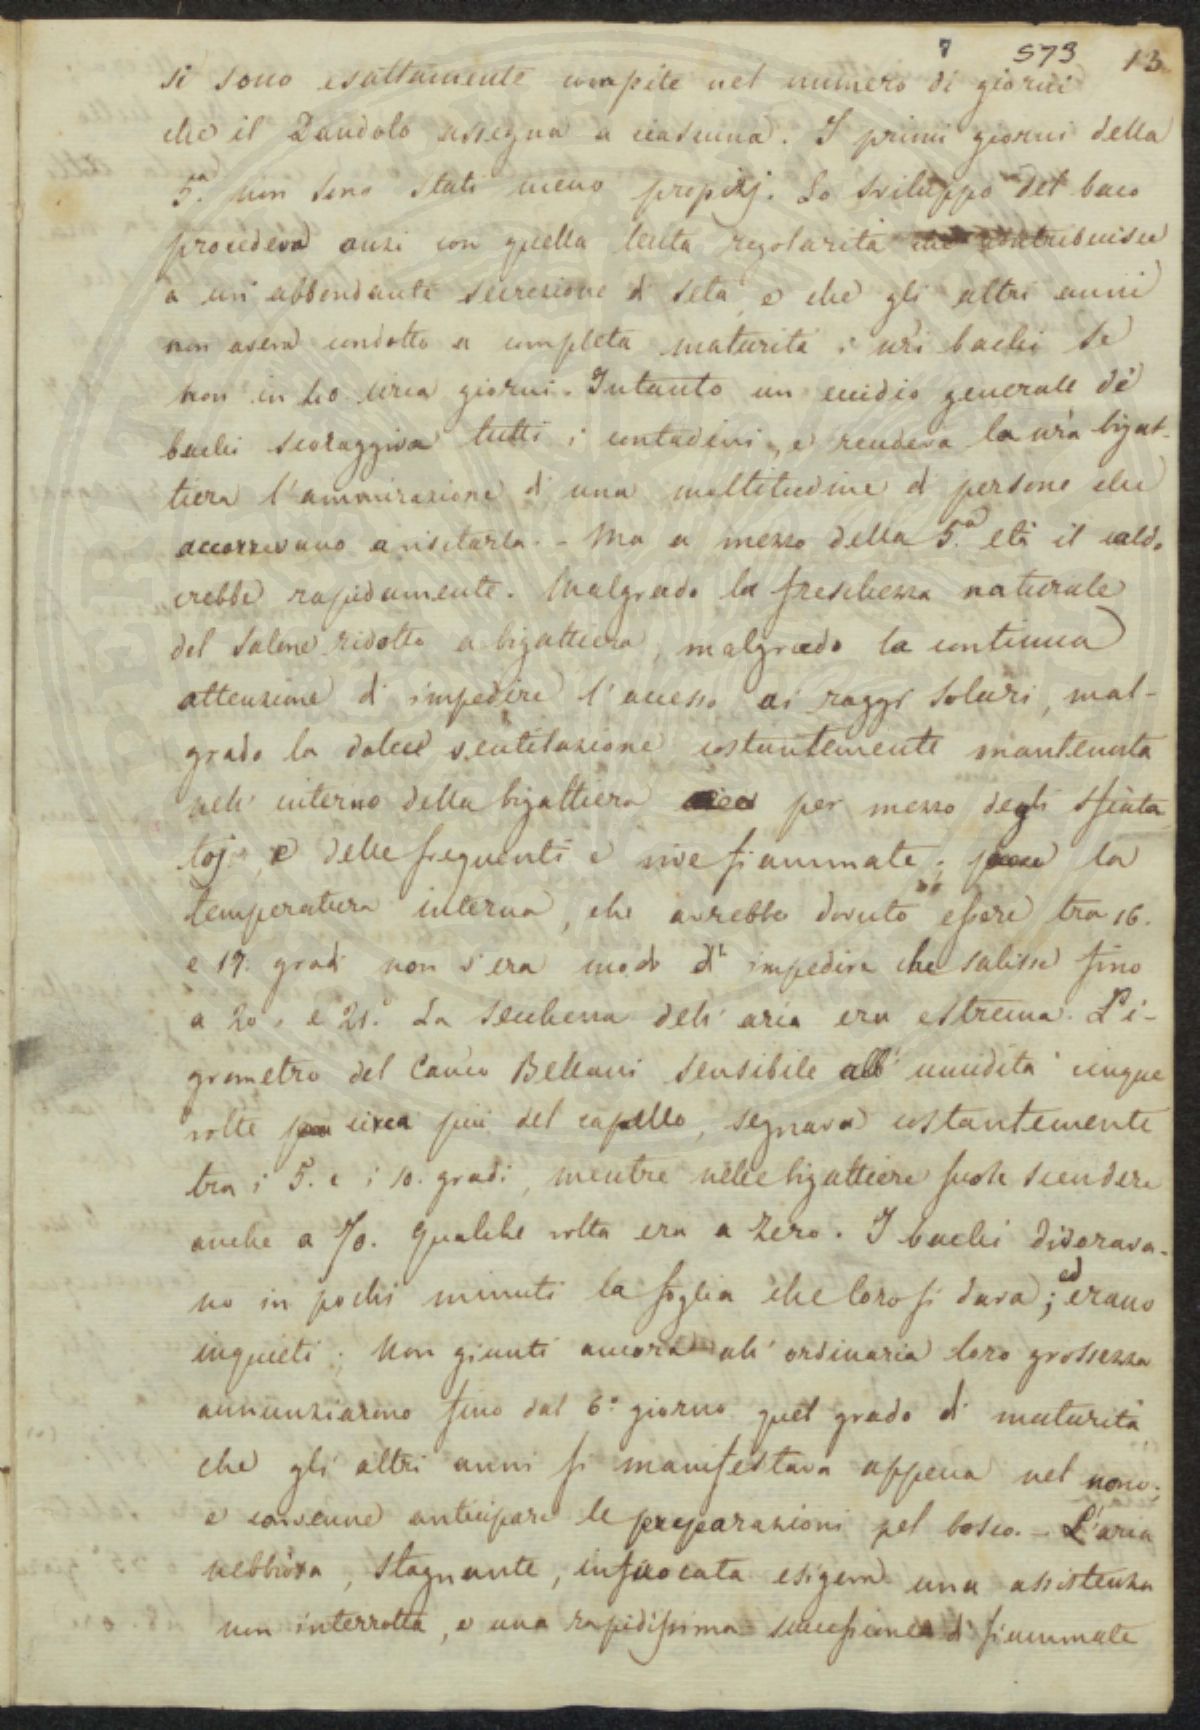 7 573 13
si sono esattamente compite nel numero di giorni
che il Dandolo assegna a ciascuna. I primi giorni della
5.a non sono stati meno propizj. Lo sviluppo del baco
procedeva anzi con quella lenta regolarità che contribuisce
a un' abbondante secrezione di seta, e che gli altri anni
non aveva condotto a completa maturità i miei bachi se
non in 40 circa giorni. Intanto un eccidio generale de'
bachi scoraggiva tutti i contadini, e rendeva la mia bigat-
tiera l'ammirazione di una moltitudine di persone che
accorrevano a visitarla. - Ma a mezzo della 5.a età il caldo
crebbe rapidamente. Malgrado la freschezza naturale
del salone ridotto a bigattiera, malgrado la continua
attenzione d' impedire l'accesso ai raggi solari, mal-
grado la dolce ventilazione costantemente mantenuta
nell' interno della bigattiera per mezzo degli sfiata
toj, e delle frequenti e vive fiammate; la
temperatura interna, che avrebbe dovuto essere tra 16.
e 17. gradi non v'era modo d' impedire che salisse fino
a 20. e 21. La secchezza dell' aria era estrema. L'i-
grometro del Canco Bellani sensibile all' umidità cinque
volte circa più del capello, segnava costantemente
tra i 5. e i 10. gradi, mentre nelle bigattiere suole scendere
anche a 70. Qualche volta era a zero. I bachi divorava-
no in pochi minuti la foglia che loro si dava; ed erano
inquieti; Non giunti ancora all' ordinaria loro grossezza
annunziarono fino dal 6.o giorno quel grado di maturità
che gli altri anni si manifestava appena nel nono;
e convenne anticipare le preparazioni pel bosco. - L'aria
nebbiosa, stagnante, infuocata esigeva una assistenza
non interrotta, e una rapidissima successione di fiammate